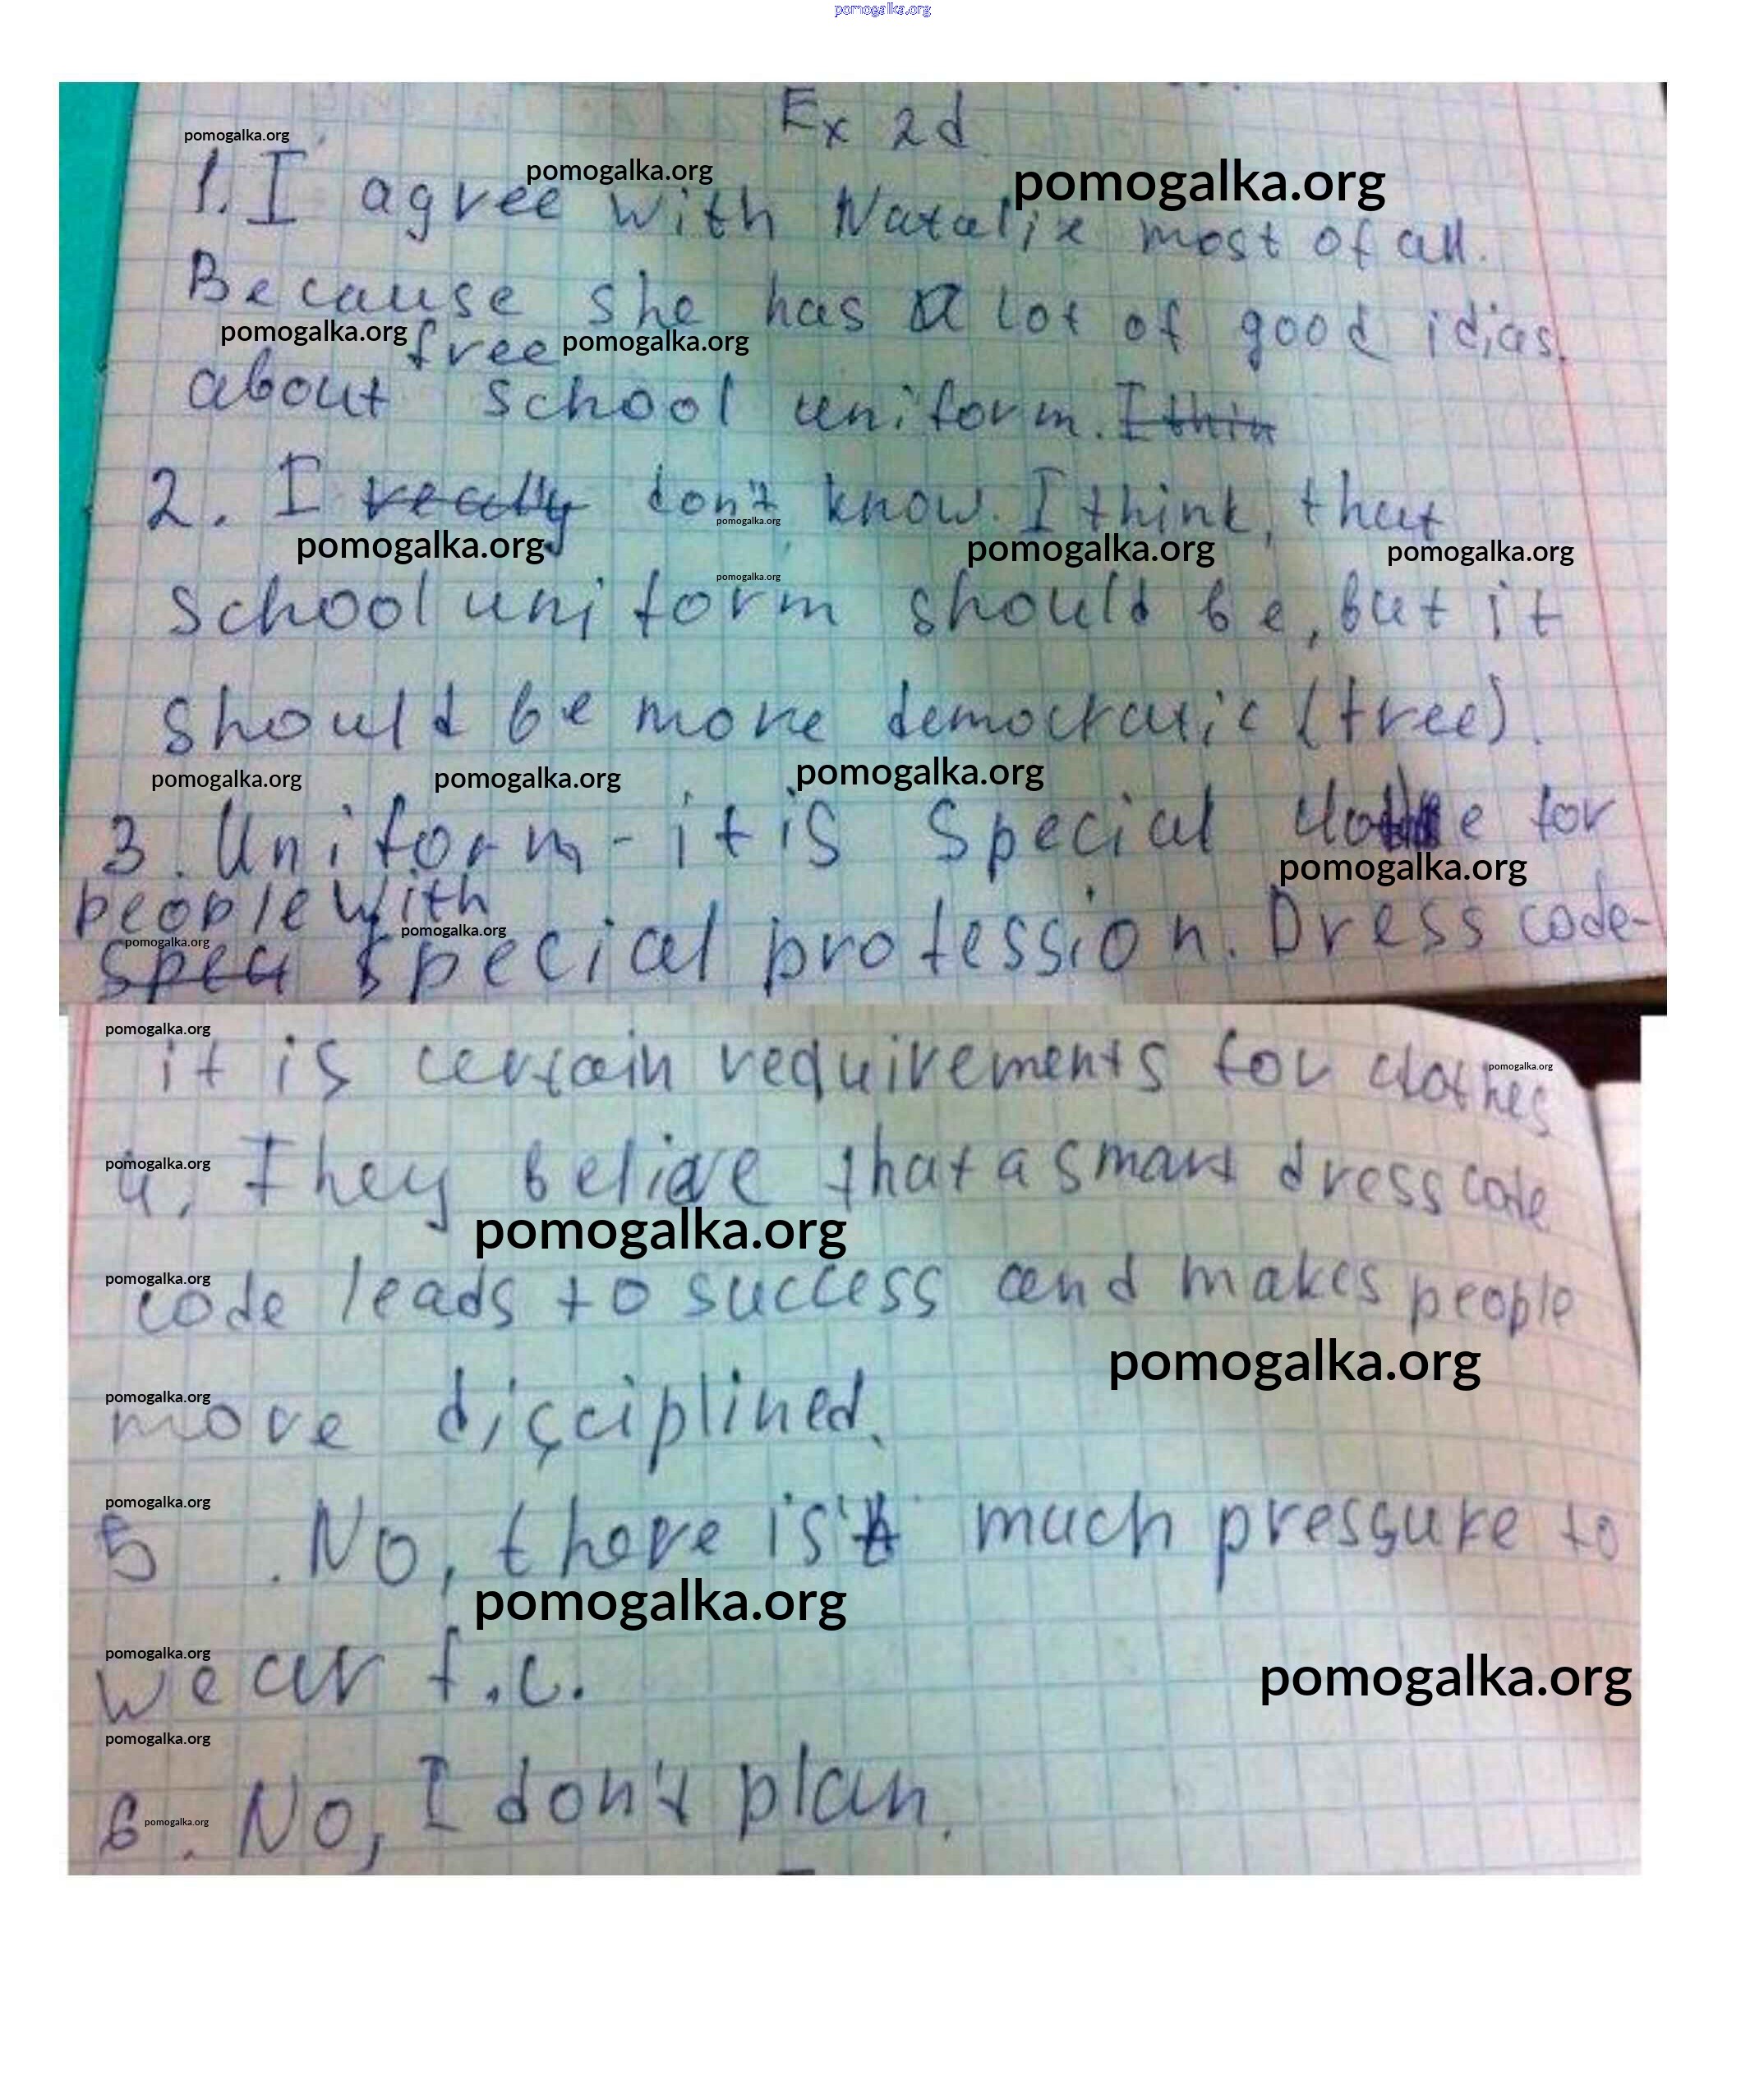 pomogalka.org
Ex 2d
pomogalka.org
pomogalka.org
pomogalka.org
1. I agree with Natalie most of all.
Because she has a lot of good idias
pomogalka.org
free
pomogalka.org
about school uniform. I thin
2. I really don't know. I think, that
pomogalka.org
pomogalka.org
pomogalka.org
pomogalka.org
pomogalka.org
school uniform should be, but it
should be more democratic (free).
pomogalka.org
pomogalka.org
pomogalka.org
3. Uniform - it is special for
pomogalka.org
people with
pomogalka.org
pomogalka.org
spec special profession. Dress code-
pomogalka.org
it is certain requirements for clothes
pomogalka.org
pomogalka.org
4. They belive that a smart dress code
pomogalka.org
pomogalka.org
code leads to success and makes people
pomogalka.org
pomogalka.org
more disciplined.
pomogalka.org
5. No, there is't much pressure to
pomogalka.org
pomogalka.org
wear f.c.
pomogalka.org
pomogalka.org
6. No, I don't plan.
pomogalka.org